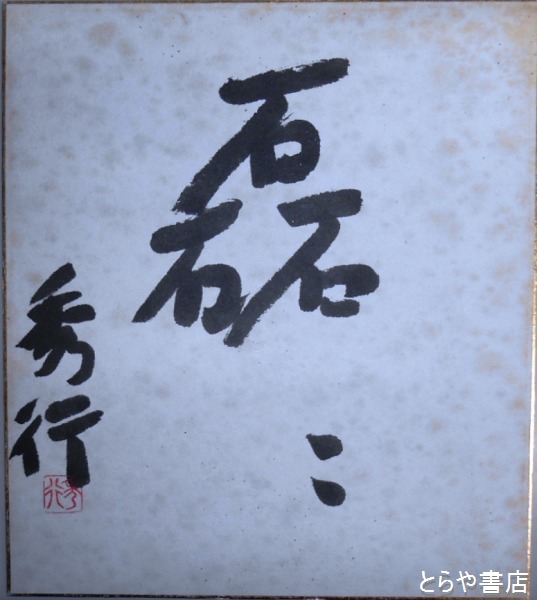 磊々
秀行
秀行
とらや書店